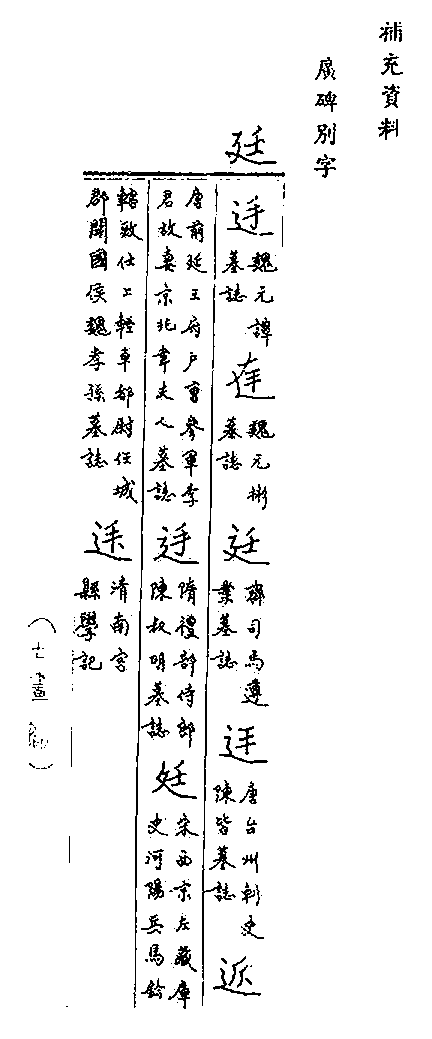 補充資料
廣碑別字
廷
迋 魏元譚墓誌 迋 魏元彬墓誌 廷 齊司馬遵業墓誌 迋 唐台州刺史陳皆墓誌
唐前延王府戶曹參軍李君故妻京兆韋夫人墓誌 隋禮部侍郎陳叔明墓誌 廷 宋西京左藏庫史河陽兵馬鈐
轄致仕上輕車都尉任城郡開國侯魏孝孫墓誌 清南宮縣學記
(七畫